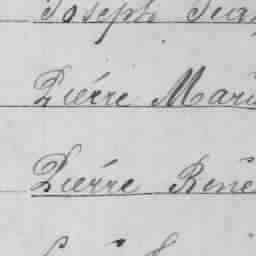 Joseph
Pierre Mari
Pierre René